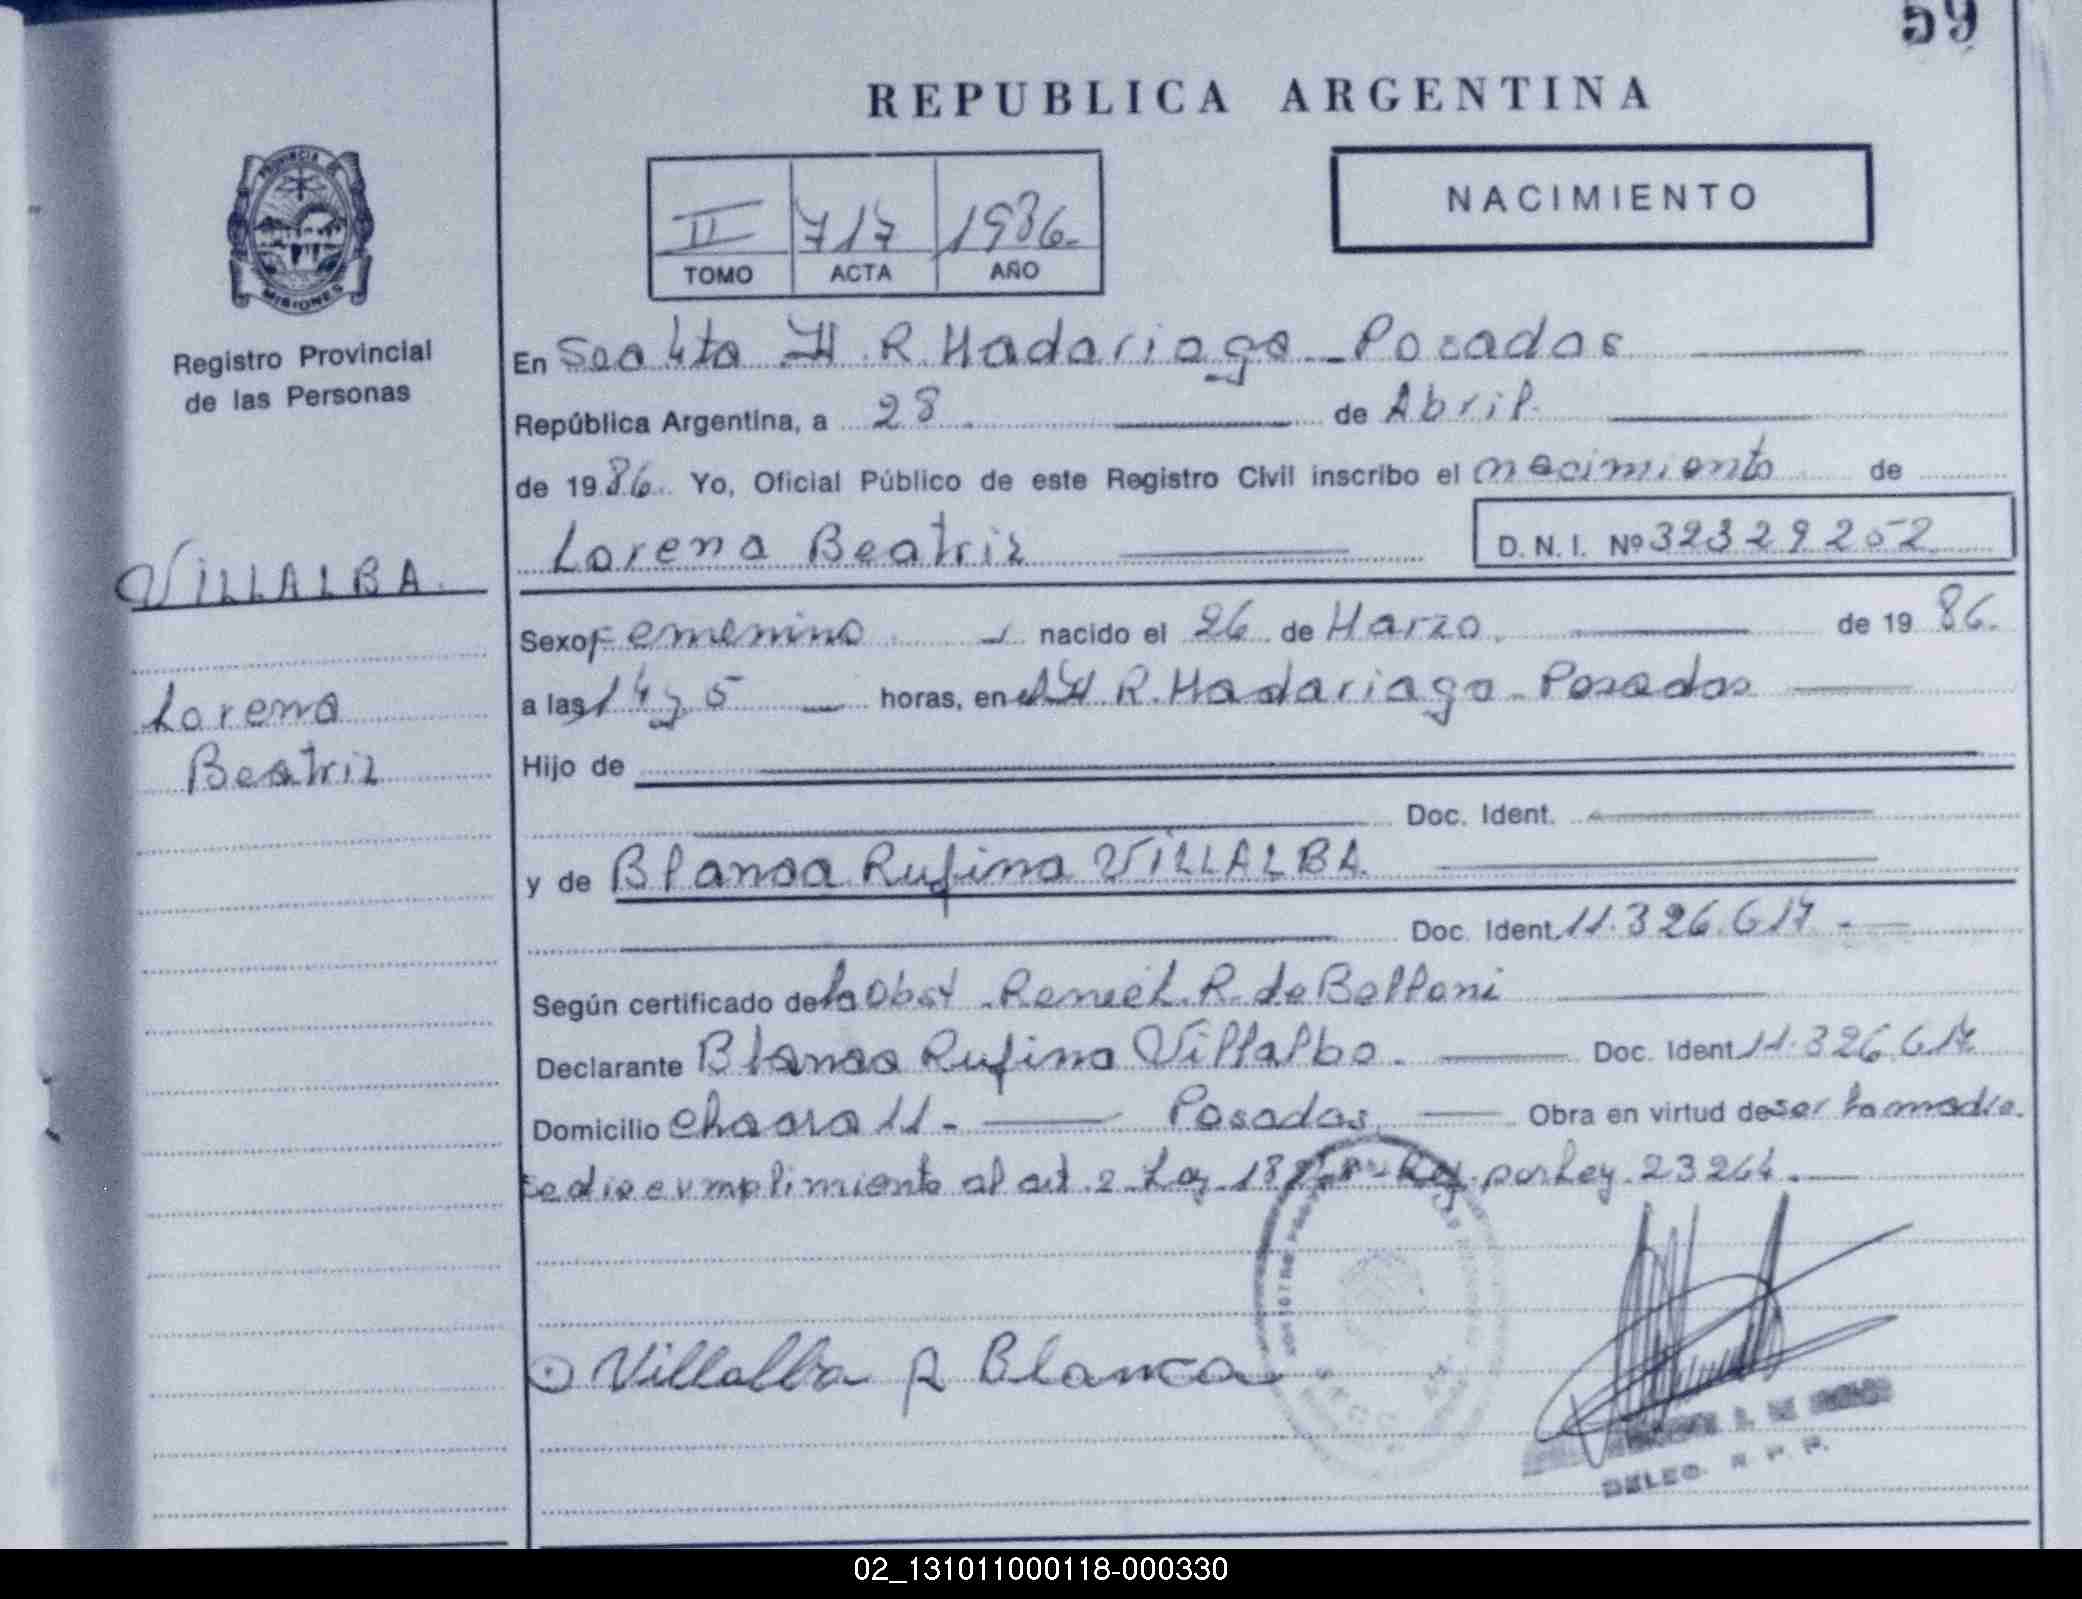 59
REPUBLICA ARGENTINA
PROVINCIA DE
MISIONES
II 717 1986.-
TOMO ACTA AÑO
NACIMIENTO
Registro Provincial
de las Personas
VILLALBA.
Lorena
Beatriz
En Secc 4ta H. R. Madariaga - Posadas
República Argentina, a 28 de Abril.
de 1986. Yo, Oficial Público de este Registro Civil inscribo el nacimiento de
Lorena Beatriz D. N. I. Nº 32329252
Sexo Femenino nacido el 26 de Marzo. de 19 86.
a las 14 y 5 horas, en H R. Madariaga - Posadas
Hijo de
Doc. Ident.
y de Blanca Rufina VILLALBA.
Doc. Ident. 11.326.617.-
Según certificado de la Obst R. de Belloni
Declarante Blanca Rufina Villalba. Doc. Ident 11.326.617
Domicilio chacra 11.- Posadas. Obra en virtud de ser la madre.
se dio cumplimiento al art. 2 Ley por Ley 23264.
Villalba R Blanca
DELEG. R. P. P.
02_131011000118-000330